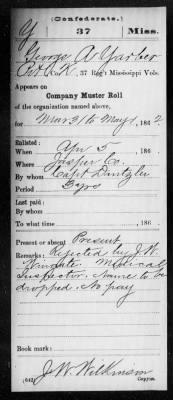 (Confederate.)
Y 37 Miss.
George A Yarber
Pvt, Co. K, 37 Reg't Mississippi Vols.
Appears on
Company Muster Roll
of the organization named above,
for Mar 31 to May 1, 1862.
Enlisted:
When Apr 5, 186 .
Where Jasper Co.
By whom Capt
Period 3 yrs
Last paid:
By whom
To what time , 186 .
Present or absent Present
Remarks: Rejected by J.W.
Medical
Inspector. Name to be
dropped. No pay
Book mark:
(642) J. W. Wilkinson
Copyist.